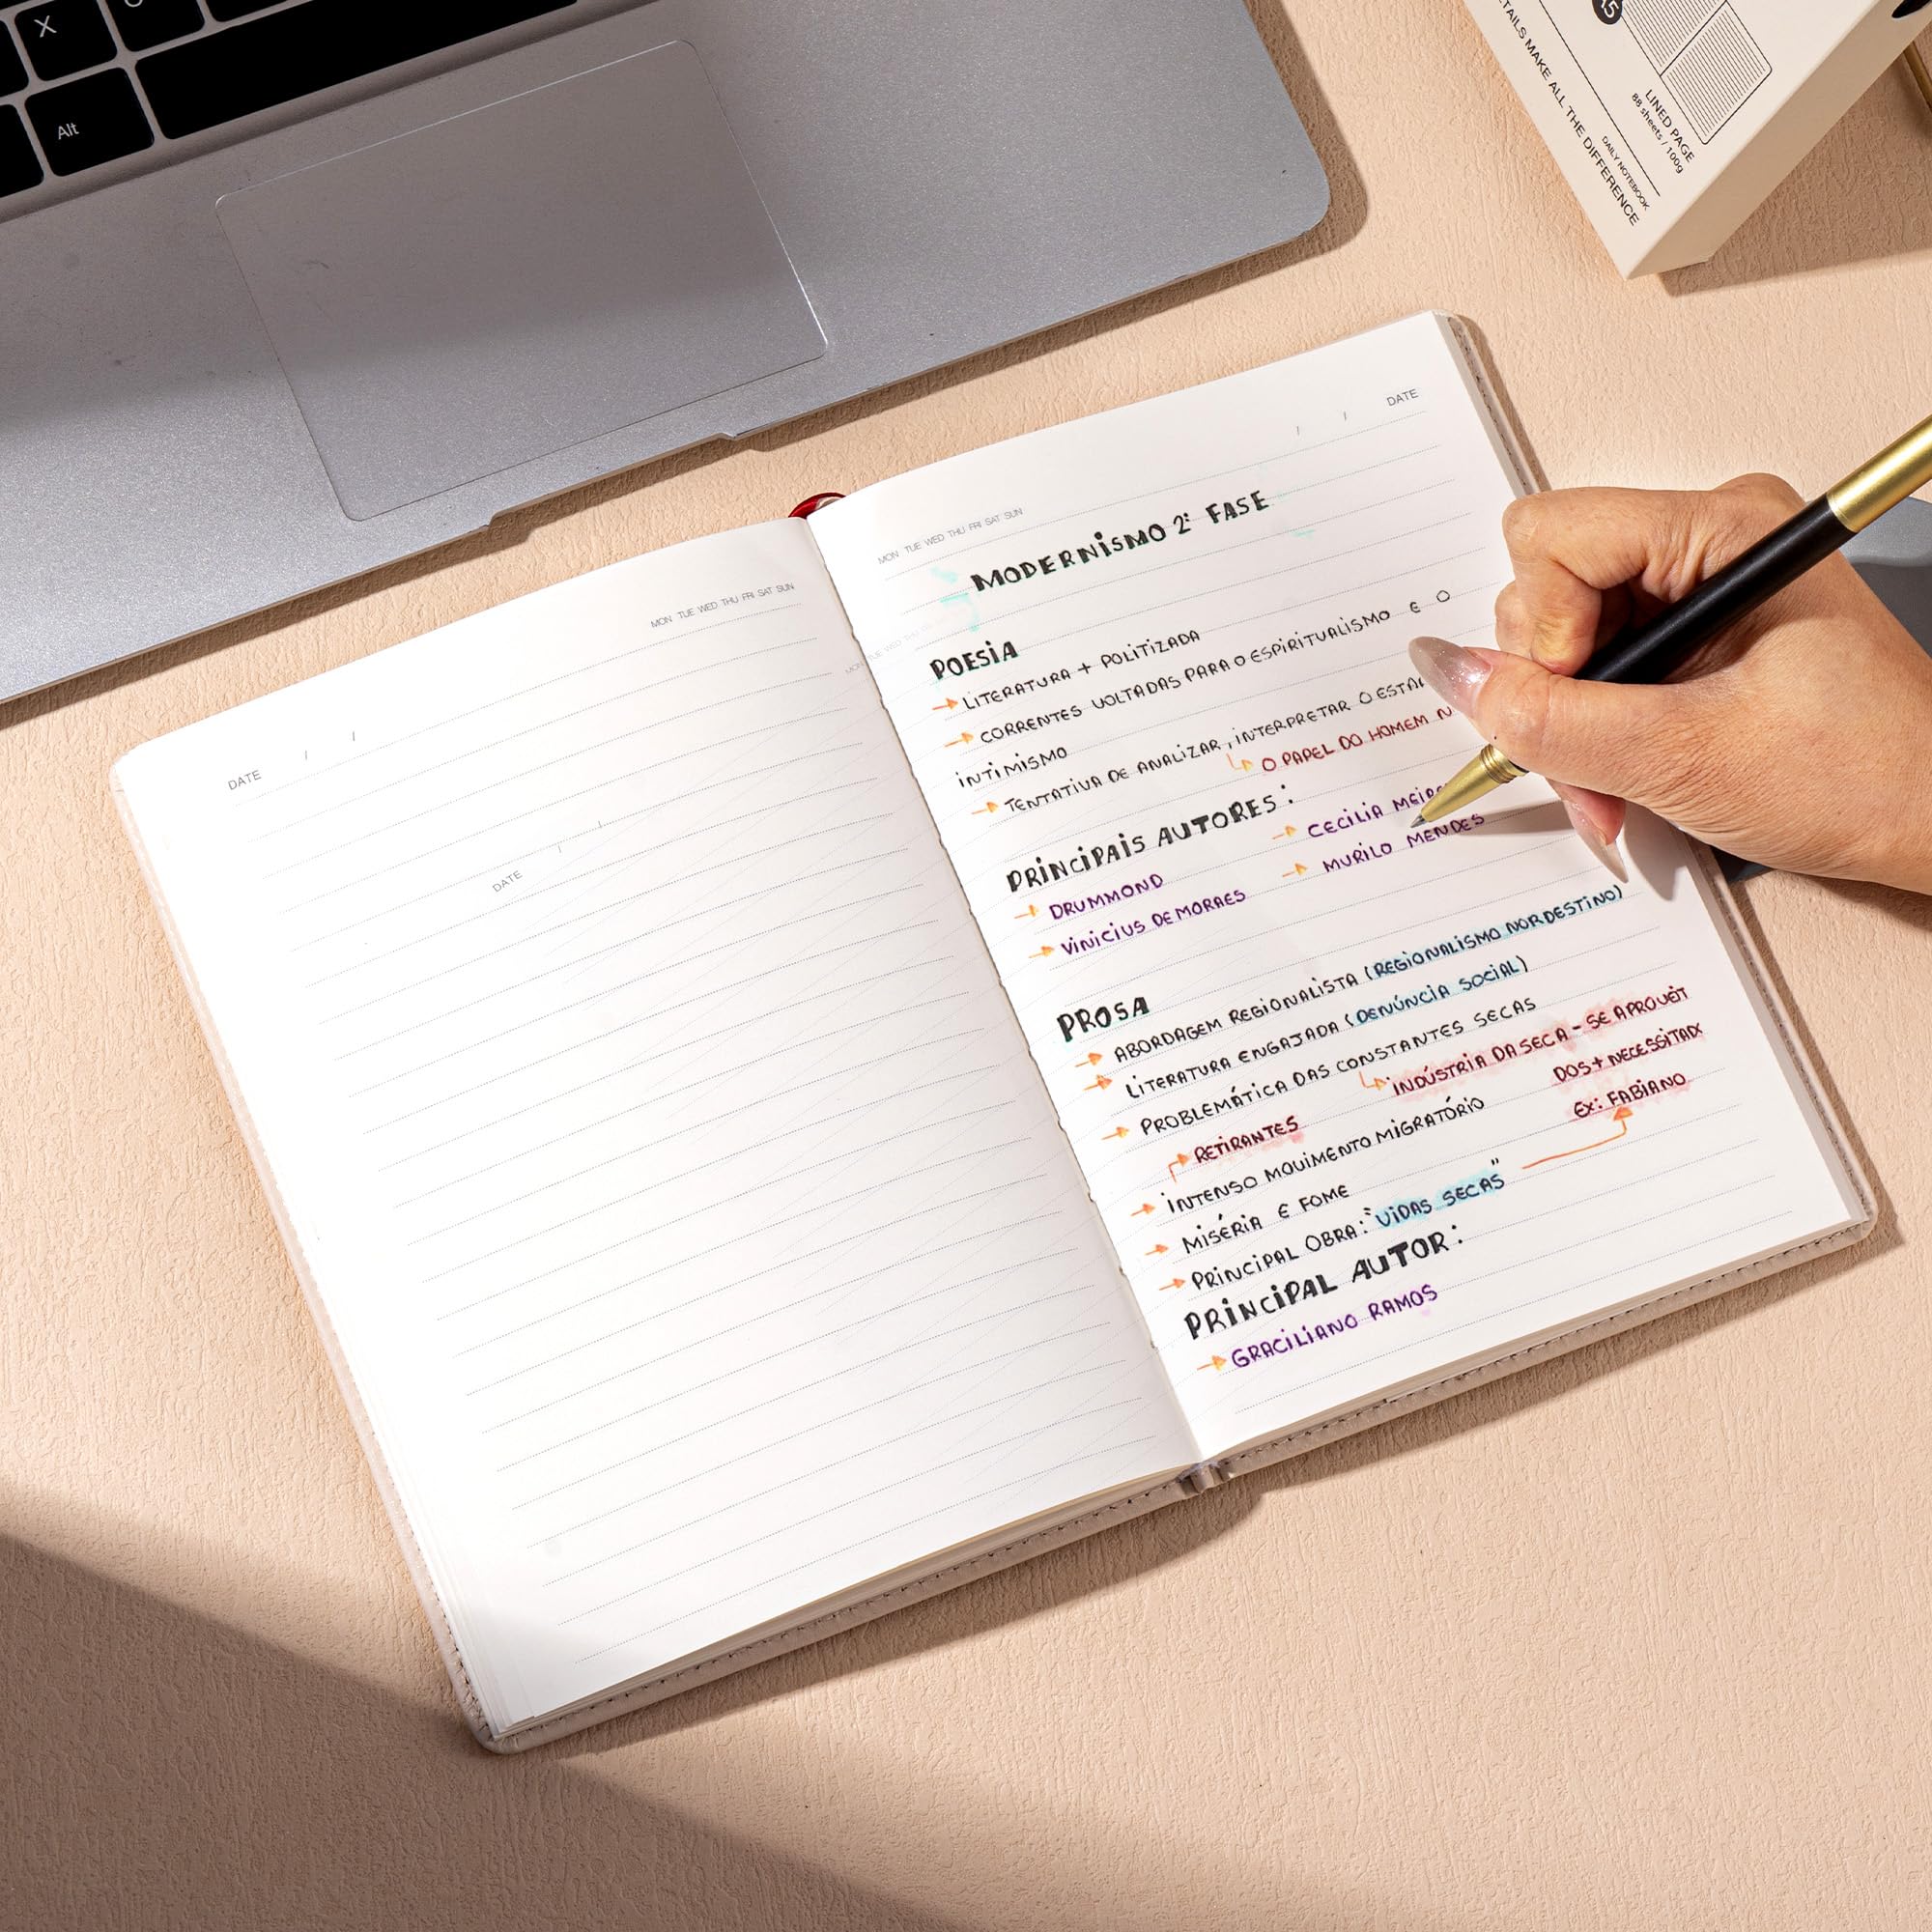 X
Alt
A5
LINED PAGE
88 sheets / 100g
DAILY NOTEBOOK
MAKE ALL THE DIFFERENCE
MON TUE WED THU FRI SAT SUN
DATE / /
DATE / /
/ / DATE
MON TUE WED THU FRI SAT SUN
MODERNISMO 2ª FASE
POESIA
LITERATURA + POLITIZADA
CORRENTES VOLTADAS PARA O ESPIRITUALISMO E O
INTIMISMO
TENTATIVA DE ANALIZAR, INTERPRETAR O
O PAPEL DO HOMEM
PRINCIPAIS AUTORES:
DRUMMOND
CECILIA
VINICIUS DE MORAES
MURILO MENDES
PROSA
ABORDAGEM REGIONALISTA (REGIONALISMO NORDESTINO)
LITERATURA ENGAJADA (DENÚNCIA SOCIAL)
PROBLEMÁTICA DAS CONSTANTES SECAS
INDÚSTRIA DA SECA - SE APROVEIT
DOS + NECESSITADX
EX: FABIANO
RETIRANTES
INTENSO MOVIMENTO MIGRATÓRIO
MISÉRIA E FOME
PRINCIPAL OBRA: "VIDAS SECAS"
PRINCIPAL AUTOR:
GRACILIANO RAMOS